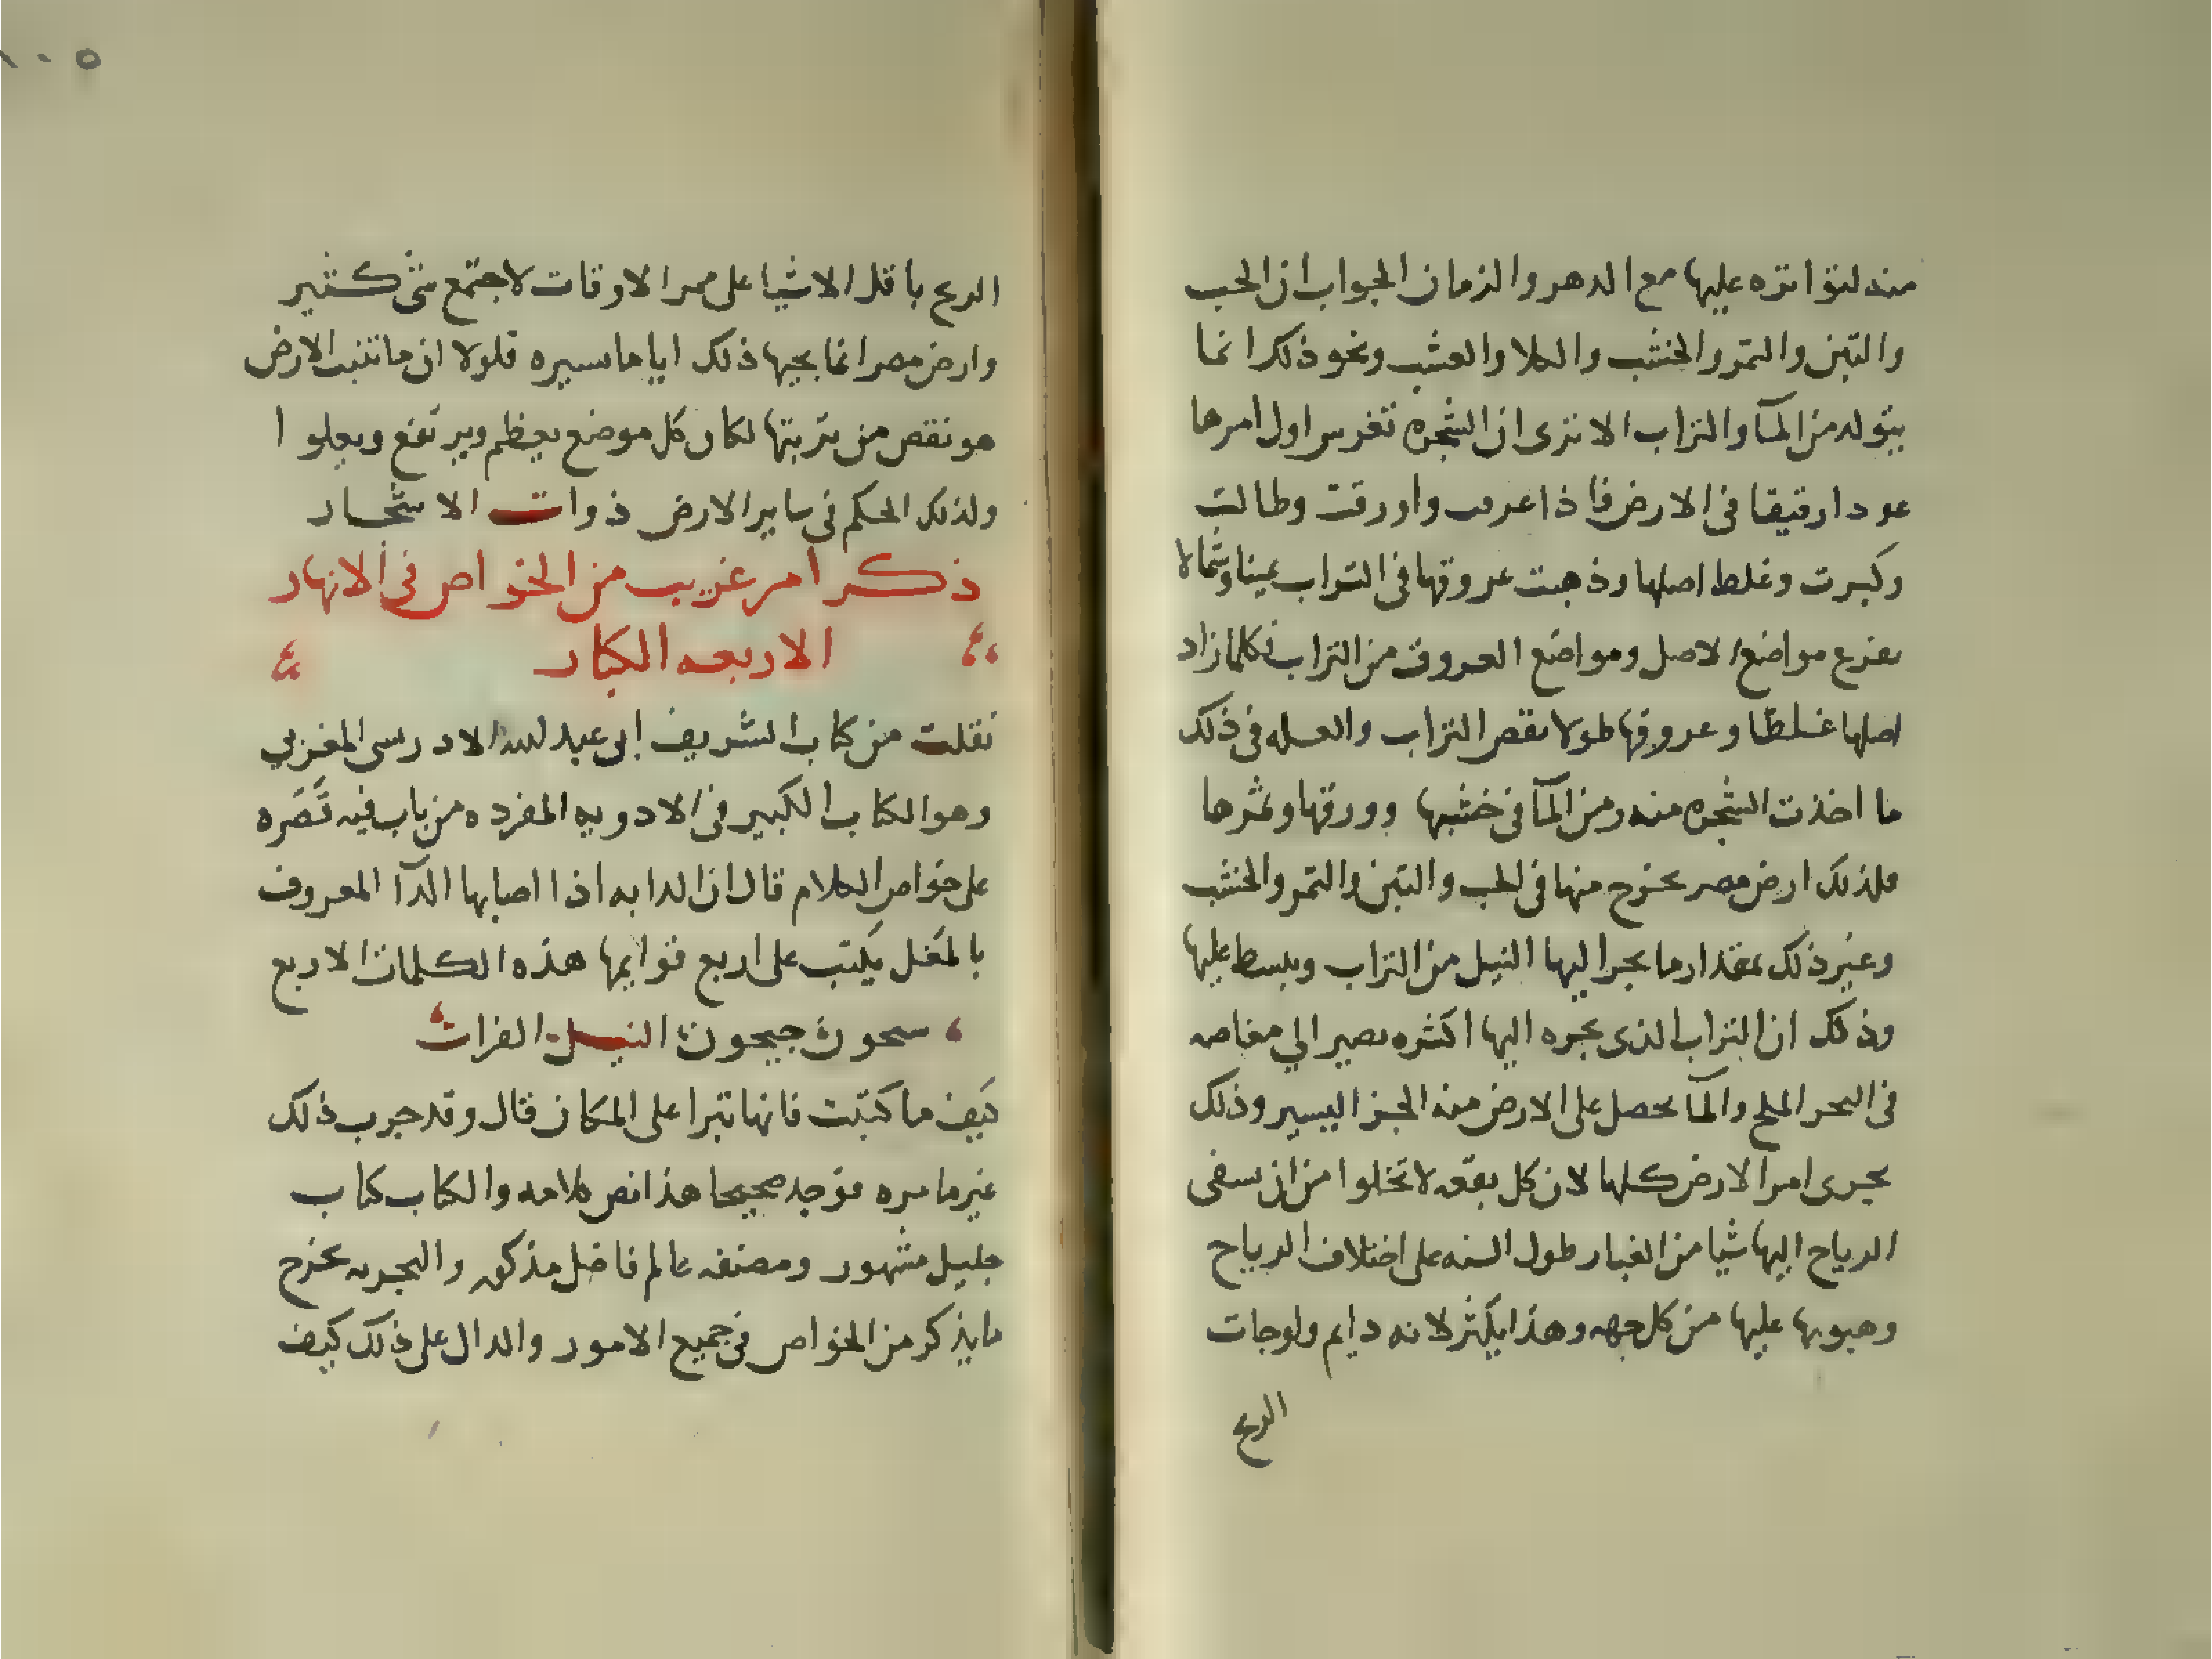 منه لتواتره عليها مع الدهر والزمان الجواب ان الحب
والتبن والتمر والخشب والكلا والعشب ونحو ذلك انما
يتولد من المآ والتراب الا ترى ان الشجره تغرس اول امرها
عودا رقيقا فى الارض فاذا عرقت واورقت وطالت
وكبرت وغلط اصلها وذهبت عروقها فى التراب يمينا وشمالا
مواضع الاصل ومواضع العروق من التراب فكلما زاد
اصلها غلظا وعروقها طولا نقص التراب والعله فى ذلك
ما اخذت الشجره منه ومن المآ فى خشبها وورقها وثمرها
فلذلك ارض مصر يخرج منها فى الحب والتبن والتمر والخشب
وغير ذلك بمقدار ما يجر اليها النيل من التراب ويبسط عليها
وذلك ان التراب الذى يجره اليها اكثره يصير الي مغاصه
فى البحر الملح والمآ يحصل على الارض منه الجز اليسير وذلك
يجرى امر الارض كلها لان كل بقعه لا تخلوا من ان تسفى
الرياح اليها شيا من الغبار طول السنه على اختلاف الرياح
وهبوبها عليها من كل جهه وهذا يكثر لانه دايم ولو جات
الريح
١٠٥
الريح باقل الاشيا على ممر الاوقات لاجتمع شى كثير
وارض مصر انما يجيها ذلك اياما يسيره فلولا ان ما تنبت الارض
هو نقص من تربتها لكان كل موضع يعظم ويرتفع ويعلوا
ولذلك الحكم فى ساير الارض ذوات الاشجار
ذكر امر غريب من الخواص فى الانهار
الاربعه الكبار
نقلت من كتاب الشريف ابى عبد الله الادريسى المغربي
وهو الكتاب الكبير فى الادويه المفرده من باب فيه
على خواص الكلام قال ان الدابه اذا اصابها الدآ المعروف
بالمغل يكتب على اربع قوايمها هذه الكلمات الاربع
سحون جيحون النيل الفرات
كيف ما كتبت فانها تبرا على المكان قال وقد جرب ذلك
غير ما مره فوجد صحيحا هذا نص كلامه والكتاب كتاب
جليل مشهور ومصنفه عالم فاضل مذكور والتجربه تخرج
ما يذكر من الخواص فى جميع الامور والدال على ذلك كيف